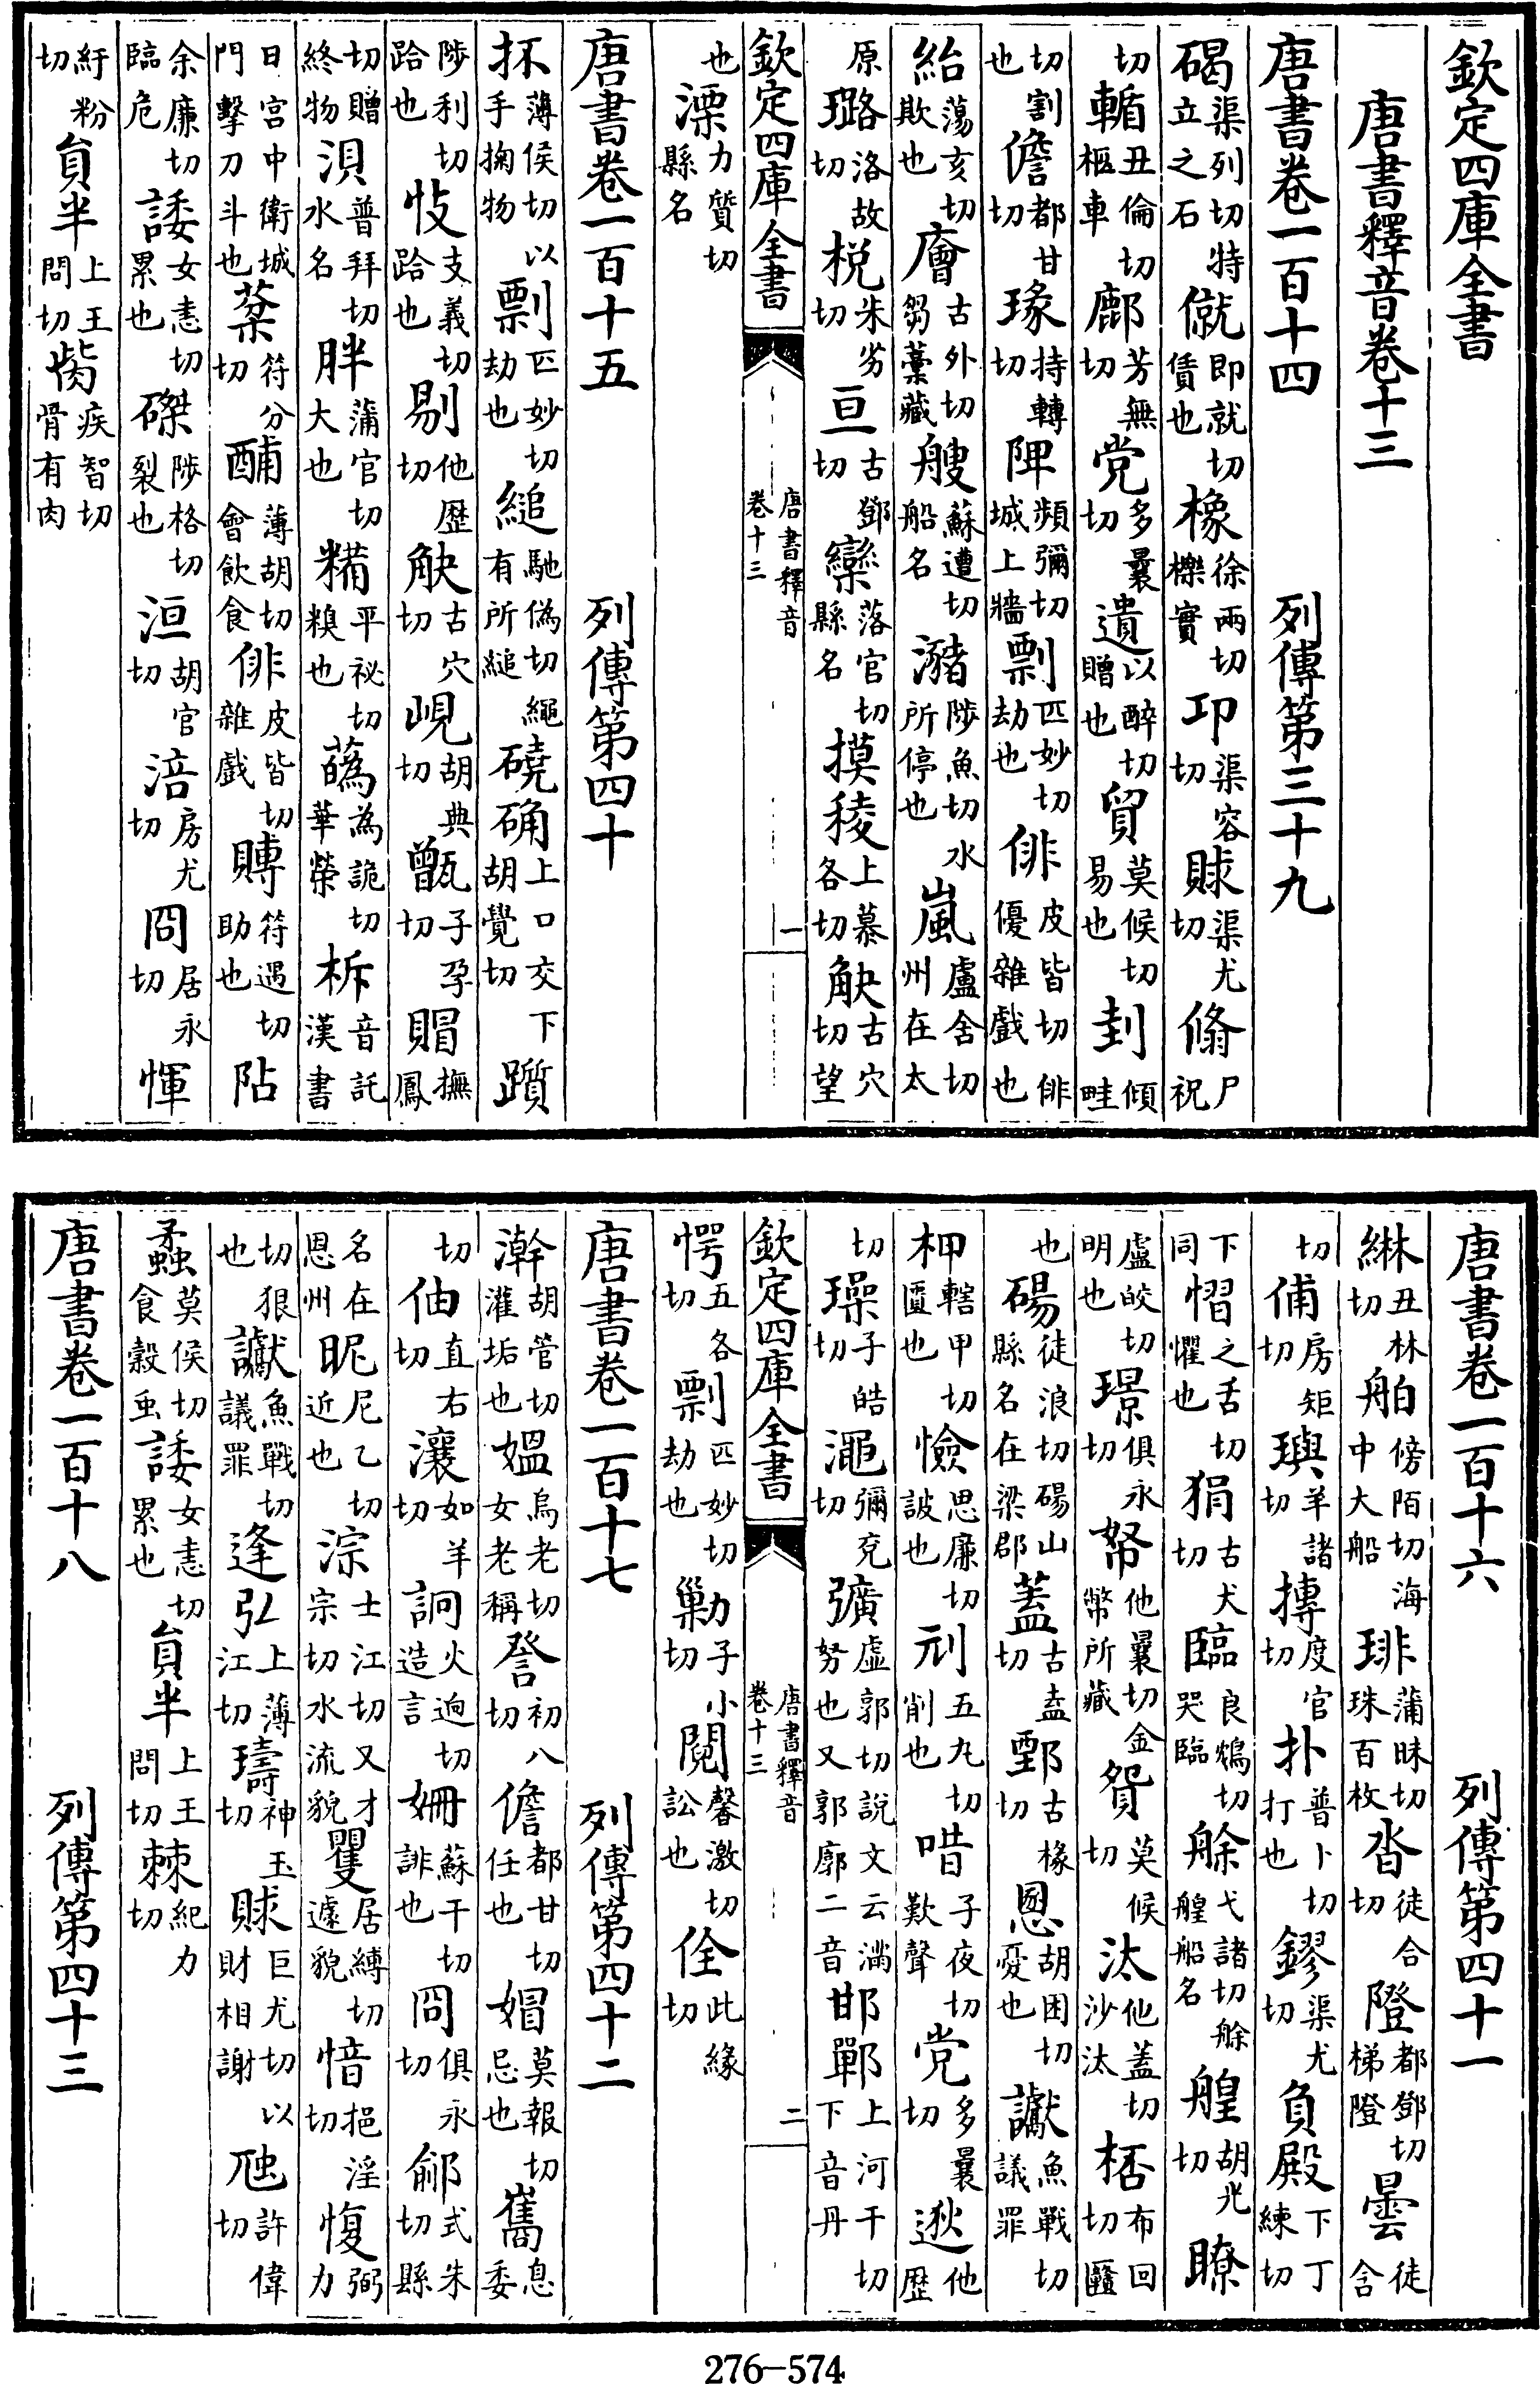 欽定四庫全書
唐書釋音卷十三
唐書卷一百十四 列傳第三十九
碣渠列切特立之石僦即就切賃也橡徐兩切櫟實卭渠容切賕渠尤切翛尸祝
切輴丑倫切柩車鄜芳無切党多曩切遺以醉切贈也貿莫候切易也刲傾畦
切割也儋都甘切瑑持轉切陴頻彌切城上牆剽匹妙切劫也俳皮皆切俳優雜戲也
紿蕩亥切欺也廥古外切芻藁藏艘蘇遭切船名瀦陟魚切水所停也嵐盧含切州在太
原璐洛故切梲朱劣切亘古鄧切欒落官切縣名摸稜上慕各切觖古穴切望
欽定四庫全書 唐書釋音卷十三 一
也溧力質切縣名
唐書卷一百十五 列傳第四十
抔薄侯切以手掬物剽匹妙切劫也縋馳偽切繩有所縋磽确上口交下胡覺切躓
陟利切跲也忮支義切跲也剔他歷切觖古穴切峴胡典切甑子孕切賵撫鳳
切贈終物浿普拜切水名胖蒲官切大也糒平祕切糗也蔿為詭切華榮柝音託漢書
日宮中衛城門擊刀斗也棻符分切酺薄胡切會飲食俳皮皆切雜戲賻符遇切助也阽
余廉切臨危諉女恚切累也磔陟格切裂也洹胡官切涪房尤切冏居永切惲
紆粉切貟半上王問切胔疾智切骨有肉
唐書卷一百十六 列傳第四十一
綝丑林切舶傍陌切海中大船琲蒲昧切珠百枚沓徒合切隥都鄧切梯隥曇徒含
切俌房矩切璵羊諸切摶度官切扑普卜切打也鏐渠尤切負殿下丁練切
下同慴之舌切懼也狷古犬切臨良鴆切哭臨艅弋諸切艅艎船名艎胡光切瞭
盧皎切明也璟俱永切帑他曩切金幣所藏貿莫候切汰他蓋切沙汰桮布回切匯
也碭徒浪切碭山縣名在梁郡蓋古盍切鄄古椽切慁胡困切憂也讞魚戰切議罪
柙轄甲切匱也憸思廉切詖也刓五九切削也唶子夜切歎聲党多曩切逖他歷
切璪子皓切澠彌兗切彍虛郭切說文云滿弩也又郭廓二音邯鄲上河干切下音丹
欽定四庫全書 唐書釋音卷十三 二
愕五各切剽匹妙切劫也勦子小切鬩馨激切訟也佺此緣切
唐書卷一百十七 列傳第四十二
澣胡管切濯垢也媼烏老切女老稱詧初八切儋都甘切任也媢莫報切忌也巂息委
切伷直右切瀼如羊切詗火迥切造言姍蘇干切誹也冏俱永切鄃式朱切縣
名在恩州昵尼乙切近也淙士江切又才宗切水流貌矍居縛切遽貌愔挹淫切愎弼力
切狠也讞魚戰切議罪逄弘上薄江切璹神玉切賕巨尤切以財相謝虺許偉切
蟊莫侯切食穀虫諉女恚切累也貟半上王問切棘紀力切
唐書卷一百十八 列傳第四十三
276-574